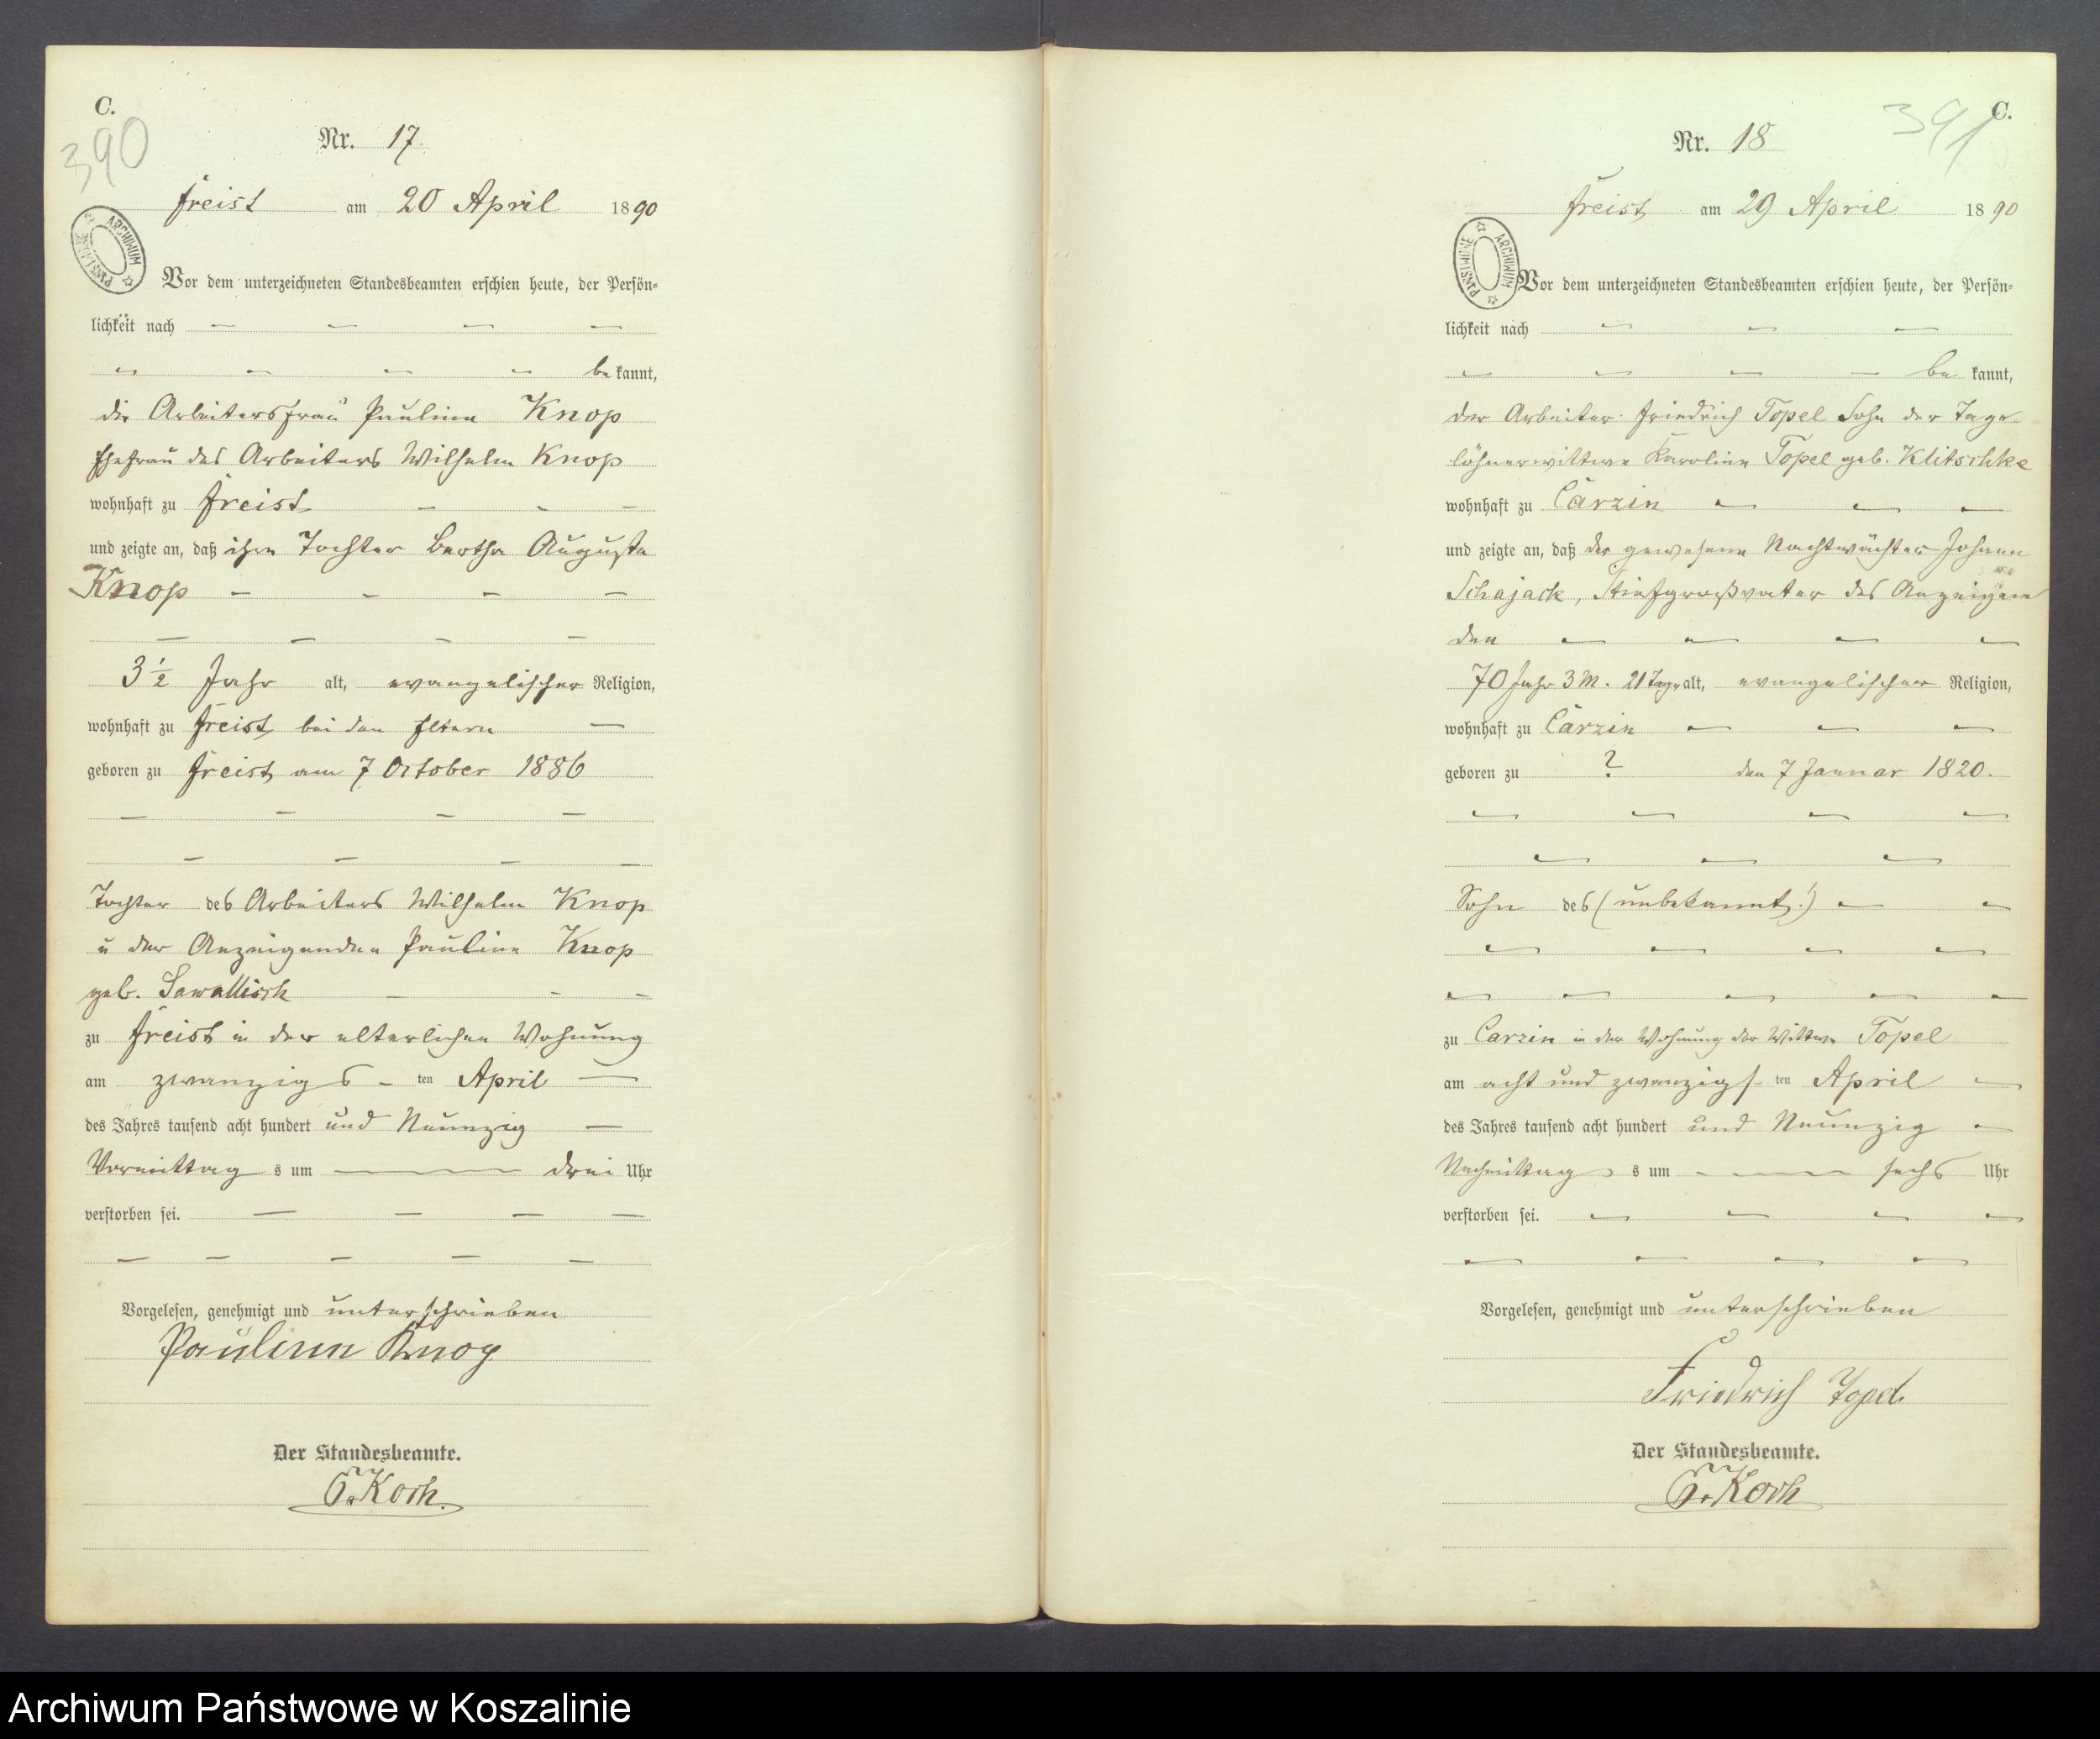 C.
390
Nr. 17.
Freist am 20 April 1890
ARCHIWUM PAŃSTWOWE
Vor dem unterzeichneten Standesbeamten erschien heute, der Persön-
lichkeit nach — — — —
— — — — bekannt,
die Arbeitersfrau Pauline Knop
Ehefrau des Arbeiters Wilhelm Knop
wohnhaft zu Freist — — —
und zeigte an, daß ihre Tochter Bertha Auguste
Knop — — — —
— — — —
3 1/2 Jahr alt, evangelischer Religion,
wohnhaft zu Freist, bei den Eltern —
geboren zu Freist am 7 October 1886
— — — —
— — — —
Tochter des Arbeiters Wilhelm Knop
u der Anzeigenden Pauline Knop
geb. Sawallisch — — —
zu Freist in der elterlichen Wohnung
am zwanzigs-ten April —
des Jahres tausend acht hundert und Neunzig —
Vormittags um — drei Uhr
verstorben sei. — — — —
— — — — —
Vorgelesen, genehmigt und unterschrieben
Pauline Knop
Der Standesbeamte.
Koch.
C.
391
Nr. 18
Freist am 29 April 1890
ARCHIWUM PAŃSTWOWE
Vor dem unterzeichneten Standesbeamten erschien heute, der Persön-
lichkeit nach — — —
— — — — bekannt,
der Arbeiter Friedrich Topel Sohn der Tage-
löhnerwittwe Karoline Topel geb. Klitschke
wohnhaft zu Carzin — — —
und zeigte an, daß der gewesene Nachtwächter Johann
Schajack, Stiefgroßvater des Anzeigen
den — — — —
70 Jahr 3 M. 21 Tage alt, evangelischer Religion,
wohnhaft zu Carzin — — —
geboren zu ? den 7 Januar 1820.
— — — —
— — —
Sohn des (unbekannt!) — —
— — — —
— — — — —
zu Carzin in der Wohnung der Wittwe Topel
am acht und zwanzigs-ten April —
des Jahres tausend acht hundert und Neunzig —
Nachmittags um — sechs Uhr
verstorben sei. — — — —
— — — —
Vorgelesen, genehmigt und unterschrieben
Friedrich Topel
Der Standesbeamte.
Koch
Archiwum Państwowe w Koszalinie